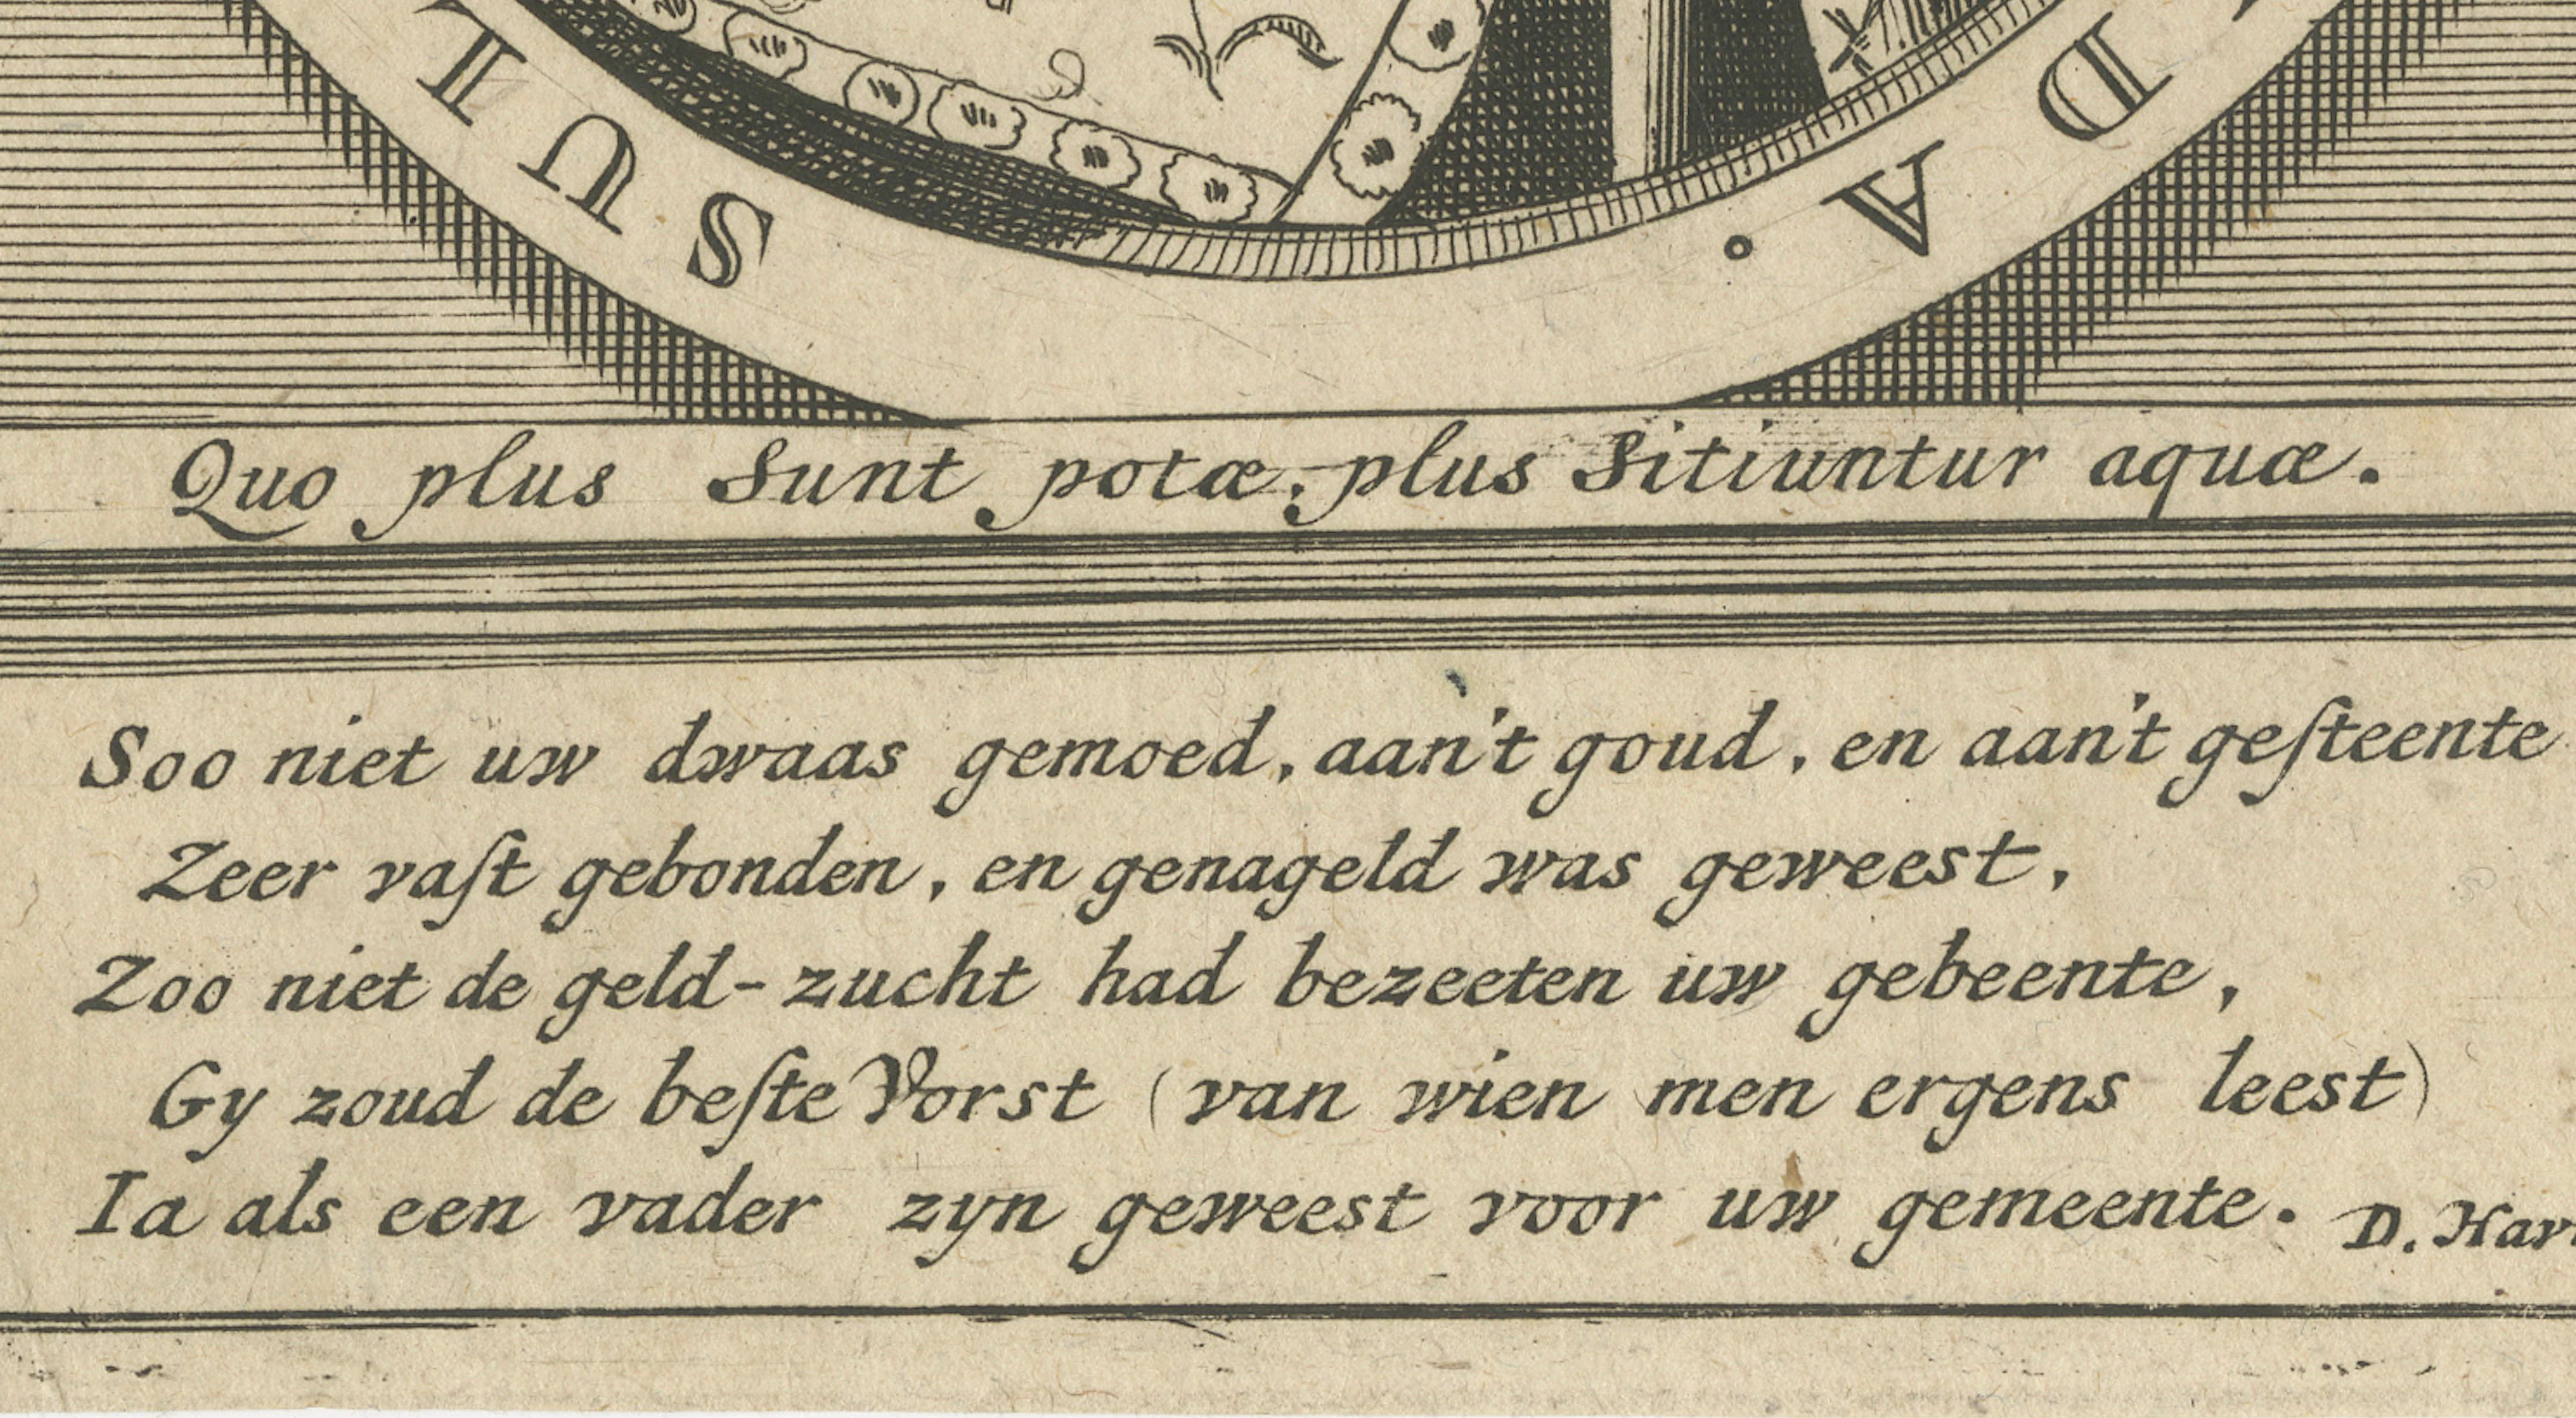 IUS
DA.
Quo plus Sunt potæ, plus Sitiuntur aquæ.
Soo niet uw dwaas gemoed, aan't goud, en aan't geſteente
Zeer vaſt gebonden, en genageld was geweest,
Zoo niet de geld-zucht had bezeeten uw gebeente,
Gy zoud de beſte Vorst (van wien men ergens leest)
Ia als een vader zyn geweest voor uw gemeente. D. Har